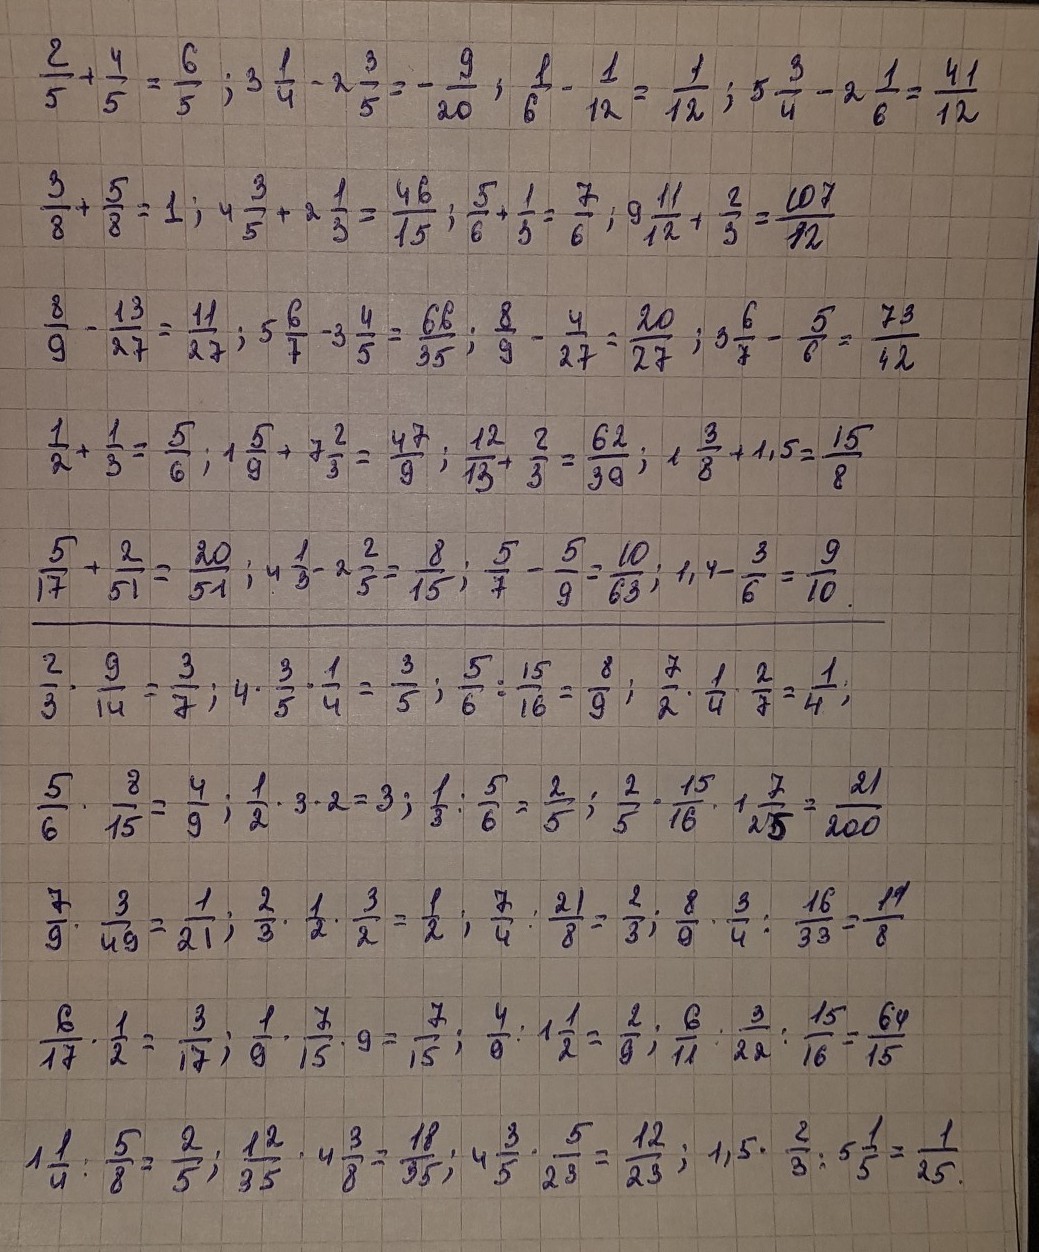 2/5 + 4/5 = 6/5 ; 3 1/4 - 2 3/5 = - 9/20 ; 1/6 - 1/12 = 1/12 ; 5 3/4 - 2 1/6 = 41/12
3/8 + 5/8 = 1 ; 4 3/5 + 2 1/3 = 46/15 ; 5/6 + 1/3 = 7/6 ; 9 11/12 + 2/3 = 107/12
8/9 - 13/27 = 11/27 ; 5 6/7 - 3 4/5 = 66/35 ; 8/9 - 4/27 = 20/27 ; 3 6/7 - 5/6 = 73/42
1/2 + 1/3 = 5/6 ; 1 5/9 + 7 2/3 = 47/9 ; 12/13 + 2/3 = 62/39 ; 1 3/8 + 1,5 = 15/8
5/17 + 2/51 = 20/51 ; 4 1/3 - 2 2/5 = 8/15 ; 5/7 - 5/9 = 10/63 ; 1,4 - 3/6 = 9/10.
2/3 · 9/14 = 3/7 ; 4 · 3/5 · 1/4 = 3/5 ; 5/6 : 15/16 = 8/9 ; 7/2 · 1/4 · 2/7 = 1/4 ;
5/6 · 8/15 = 4/9 ; 1/2 · 3 · 2 = 3 ; 1/3 : 5/6 = 2/5 ; 2/5 · 15/16 · 1 7/25 = 21/200
7/9 · 3/49 = 1/21 ; 2/3 · 1/2 · 3/2 = 1/2 ; 7/4 : 21/8 = 2/3 ; 8/9 · 3/4 : 16/33 = 11/8
6/17 · 1/2 = 3/17 ; 1/9 · 7/15 · 9 = 7/15 ; 4/9 : 1 1/2 = 2/9 ; 6/11 : 3/22 : 15/16 = 64/15
1 1/4 : 5/8 = 2/5 ; 12/35 · 4 3/8 = 18/35 ; 4 3/5 · 5/23 = 12/23 ; 1,5 · 2/3 : 5 1/5 = 1/25.